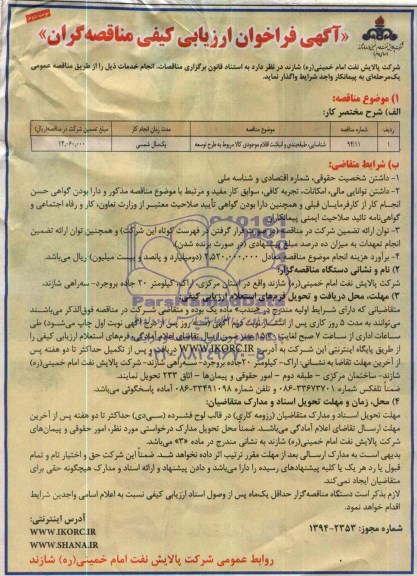 «آگهی فراخوان ارزیابی کیفی مناقصه‌گران»
شرکت پالایش نفت امام خمینی(ره) شازند در نظر دارد به استناد قانون برگزاری مناقصات، انجام خدمات ذیل را از طریق مناقصه عمومی
یک‌مرحله‌ای به پیمانکار واجد شرایط واگذار نماید.
۱) موضوع مناقصه:
الف) شرح مختصر کار:
ردیف شماره مناقصه موضوع مناقصه مدت زمان انجام کار مبلغ تضمین شرکت در مناقصه(ریال)
۱ ۹۴/۱۱ شناسایی، طبقه‌بندی و انباشت اقلام موجودی کالا مربوط به طرح توسعه یک‌سال شمسی
ب) شرایط متقاضی:
۱- داشتن شخصیت حقوقی، شماره اقتصادی و شناسه ملی
۲- داشتن توانایی مالی، امکانات، تجربه کافی، سوابق کار مفید و مرتبط با موضوع مناقصه مذکور و دارا بودن گواهی حسن
انجام کار از کارفرمایان قبلی و همچنین دارا بودن گواهی تأیید صلاحیت معتبر از وزارت تعاون، کار و رفاه اجتماعی و
گواهی‌نامه تائید صلاحیت ایمنی پیمانکاری
۳- توان ارائه تضمین شرکت در مناقصه (در صورت قرار گرفتن در فهرست کوتاه این شرکت) و همچنین توان ارائه تضمین
انجام تعهدات به میزان ده درصد مبلغ پیشنهادی (در صورت برنده شدن)
۴- برآورد هزینه انجام موضوع مناقصه معادل ۲,۵۲۰,۰۰۰,۰۰۰ (دومیلیارد و پانصد و بیست میلیون) ریال می‌باشد.
۲) نام و نشانی دستگاه مناقصه‌گزار:
شرکت پالایش نفت امام خمینی (ره) شازند واقع در استان مرکزی، اراک، کیلومتر ۲۰ جاده بروجرد- سه‌راهی شازند.
۳) مهلت، محل دریافت و تحویل فرم‌های استعلام ارزیابی کیفی:
متقاضیانی که دارای شرایط اولیه مندرج در بند «ب» ماده یک بوده و متقاضی شرکت در مناقصه فوق‌الذکر می‌باشند
می‌توانند به مدت ۵ روز کاری پس از
از طریق پایگاه اینترنتی این شرکت به آدرس WWW.IKORC.IR دریافت و پس از تکمیل حداکثر تا دو هفته پس
از آخرین مهلت تقاضا به نشانی: اراک- کیلومتر ۲۰ جاده بروجرد- سه‌راهی شازند- شرکت پالایش نفت امام خمینی(ره)
شازند- ساختمان مرکزی – طبقه دوم – امور حقوقی و پیمان‌ها – اتاق ۲۳۳ تحویل نمایند.
ضمناً تلفکس شماره ۳۳۶۷۳۷۰۱-۰۸۶ و تلفن شماره ۳۳۴۹۱۰۹۸-۰۸۶ آماده پاسخگوئی می‌باشد.
۴) محل، زمان و مهلت تحویل اسناد و مدارک متقاضیان:
مهلت تحویل اسناد و مدارک متقاضیان (رزومه کاری) در قالب لوح فشرده (سی‌دی) حداکثر تا دو هفته پس از آخرین
مهلت ارسال تقاضای اعلام آمادگی می‌باشد. ضمناً محل تحویل مدارک درخواستی مورد نظر، امور حقوقی و پیمان‌های
شرکت پالایش نفت امام خمینی(ره) شازند به نشانی مندرج در ماده «۳» می‌باشد.
بدیهی است به مدارک ارسالی بعد از مهلت مقرر ترتیب اثر داده نخواهد شد. ضمناً این شرکت حق و اختیار تام و تمام
قبول یا رد هر یک یا کلیه پیشنهادهای رسیده را دارا می‌باشد و دادن پیشنهاد و ارائه اسناد و مدارک هیچگونه حقی برای
متقاضیان ایجاد نمی‌کند.
لازم بذکر است دستگاه مناقصه‌گزار حداقل یک‌ماه پس از وصول اسناد ارزیابی کیفی نسبت به اعلام اسامی واجدین شرایط
اقدام خواهد نمود.
آدرس اینترنتی:
WWW.IKORC.IR
WWW.SHANA.IR
شماره مجوز: ۱۳۹۴-۲۳۵۳
روابط عمومی شرکت پالایش نفت امام خمینی(ره) شازند